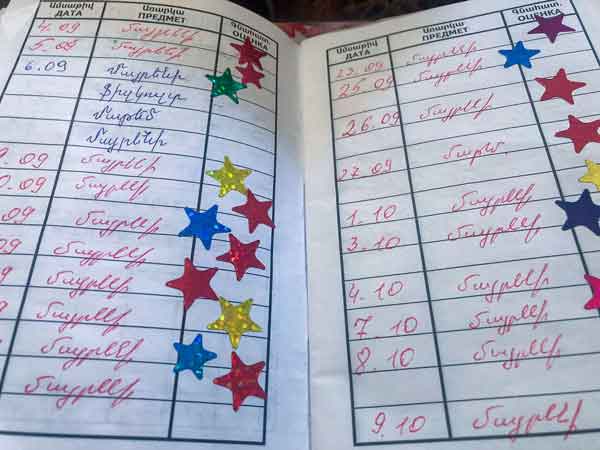 Ամսաթիվ Առարկա Գնահատ.
ДАТА ПРЕДМЕТ ОЦЕНКА
4.09 Մայրենի
5.09 Մայրենի
6.09 Մայրենի
Ֆիզկուլտ
Մաթեմ
Մայրենի
9.09 Մայրենի
0.09 Մայրենի
.09 Մայրենի
09 Մայրենի
9 Մայրենի
Մայրենի
Մայրենի
Մայրենի
Ամսաթիվ Առարկա Գնահատ.
ДАТА ПРЕДМЕТ ОЦЕНКА
23.09 Մայրենի
25.09 Մայրենի
26.09 Մայրենի
27.09 Մաթեմ.
1.10 Մայրենի
3.10 Մայրենի
4.10 Մայրենի
7.10 Մայրենի
8.10 Մայրենի
9.10 Մայրենի